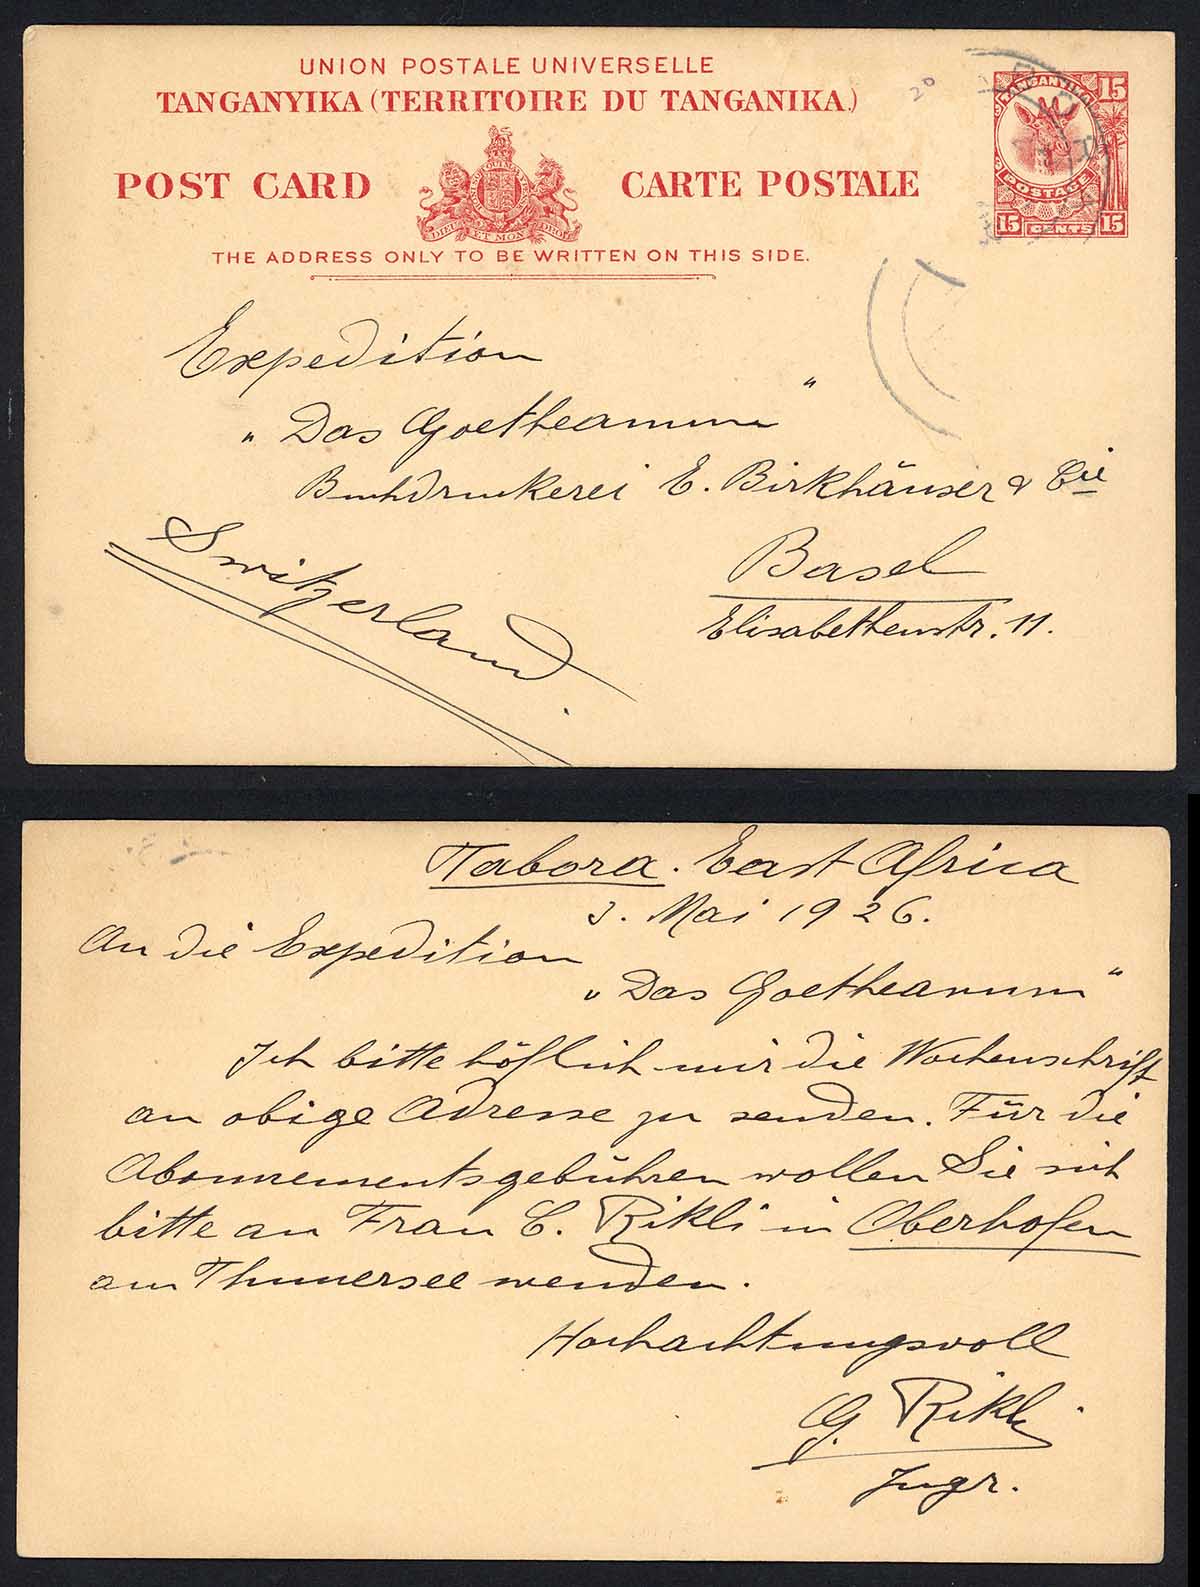 UNION POSTALE UNIVERSELLE
TANGANYIKA (TERRITOIRE DU TANGANIKA.)
POST CARD CARTE POSTALE
THE ADDRESS ONLY TO BE WRITTEN ON THIS SIDE.
20
TANGANYIKA 15
POSTAGE
15 CENTS 15
DIEU ET MON DROIT
Expedition
„Das Goetheanum“
Buchdruckerei E. Birkhäuser & Cie
Basel
Elisabethenstr. 11.
Switzerland.
Tabora. East Africa
3. Mai 1926.
An die Expedition
„Das Goetheanum“
Ich bitte höflich mir die Wochenschrift
an obige Adresse zu senden. Für die
Abonnementsgebühren wollen Sie sich
bitte an Frau C. Rikli in Oberhofen
am Thunersee wenden.
Hochachtungsvoll
G. Rikli
Ingr.